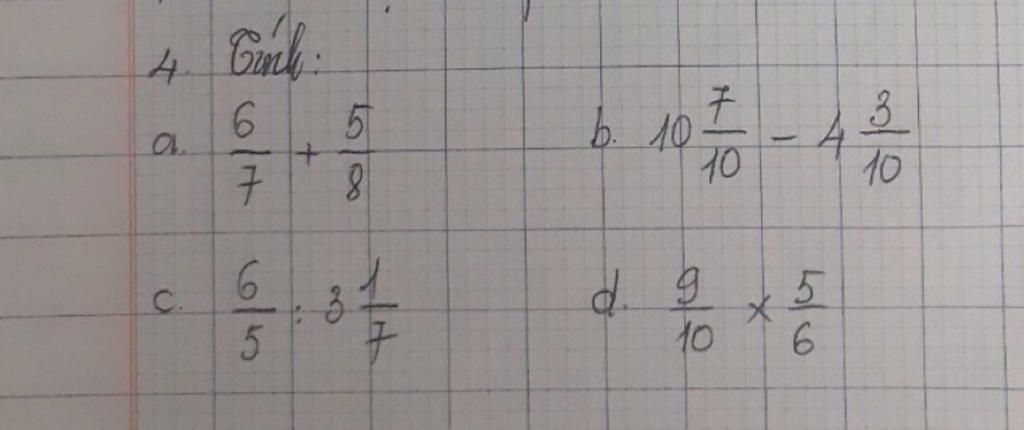 4. Tính:
a. 6/7 + 5/8
b. 10 7/10 - 4 3/10
c. 6/5 : 3 1/7
d. 9/10 × 5/6